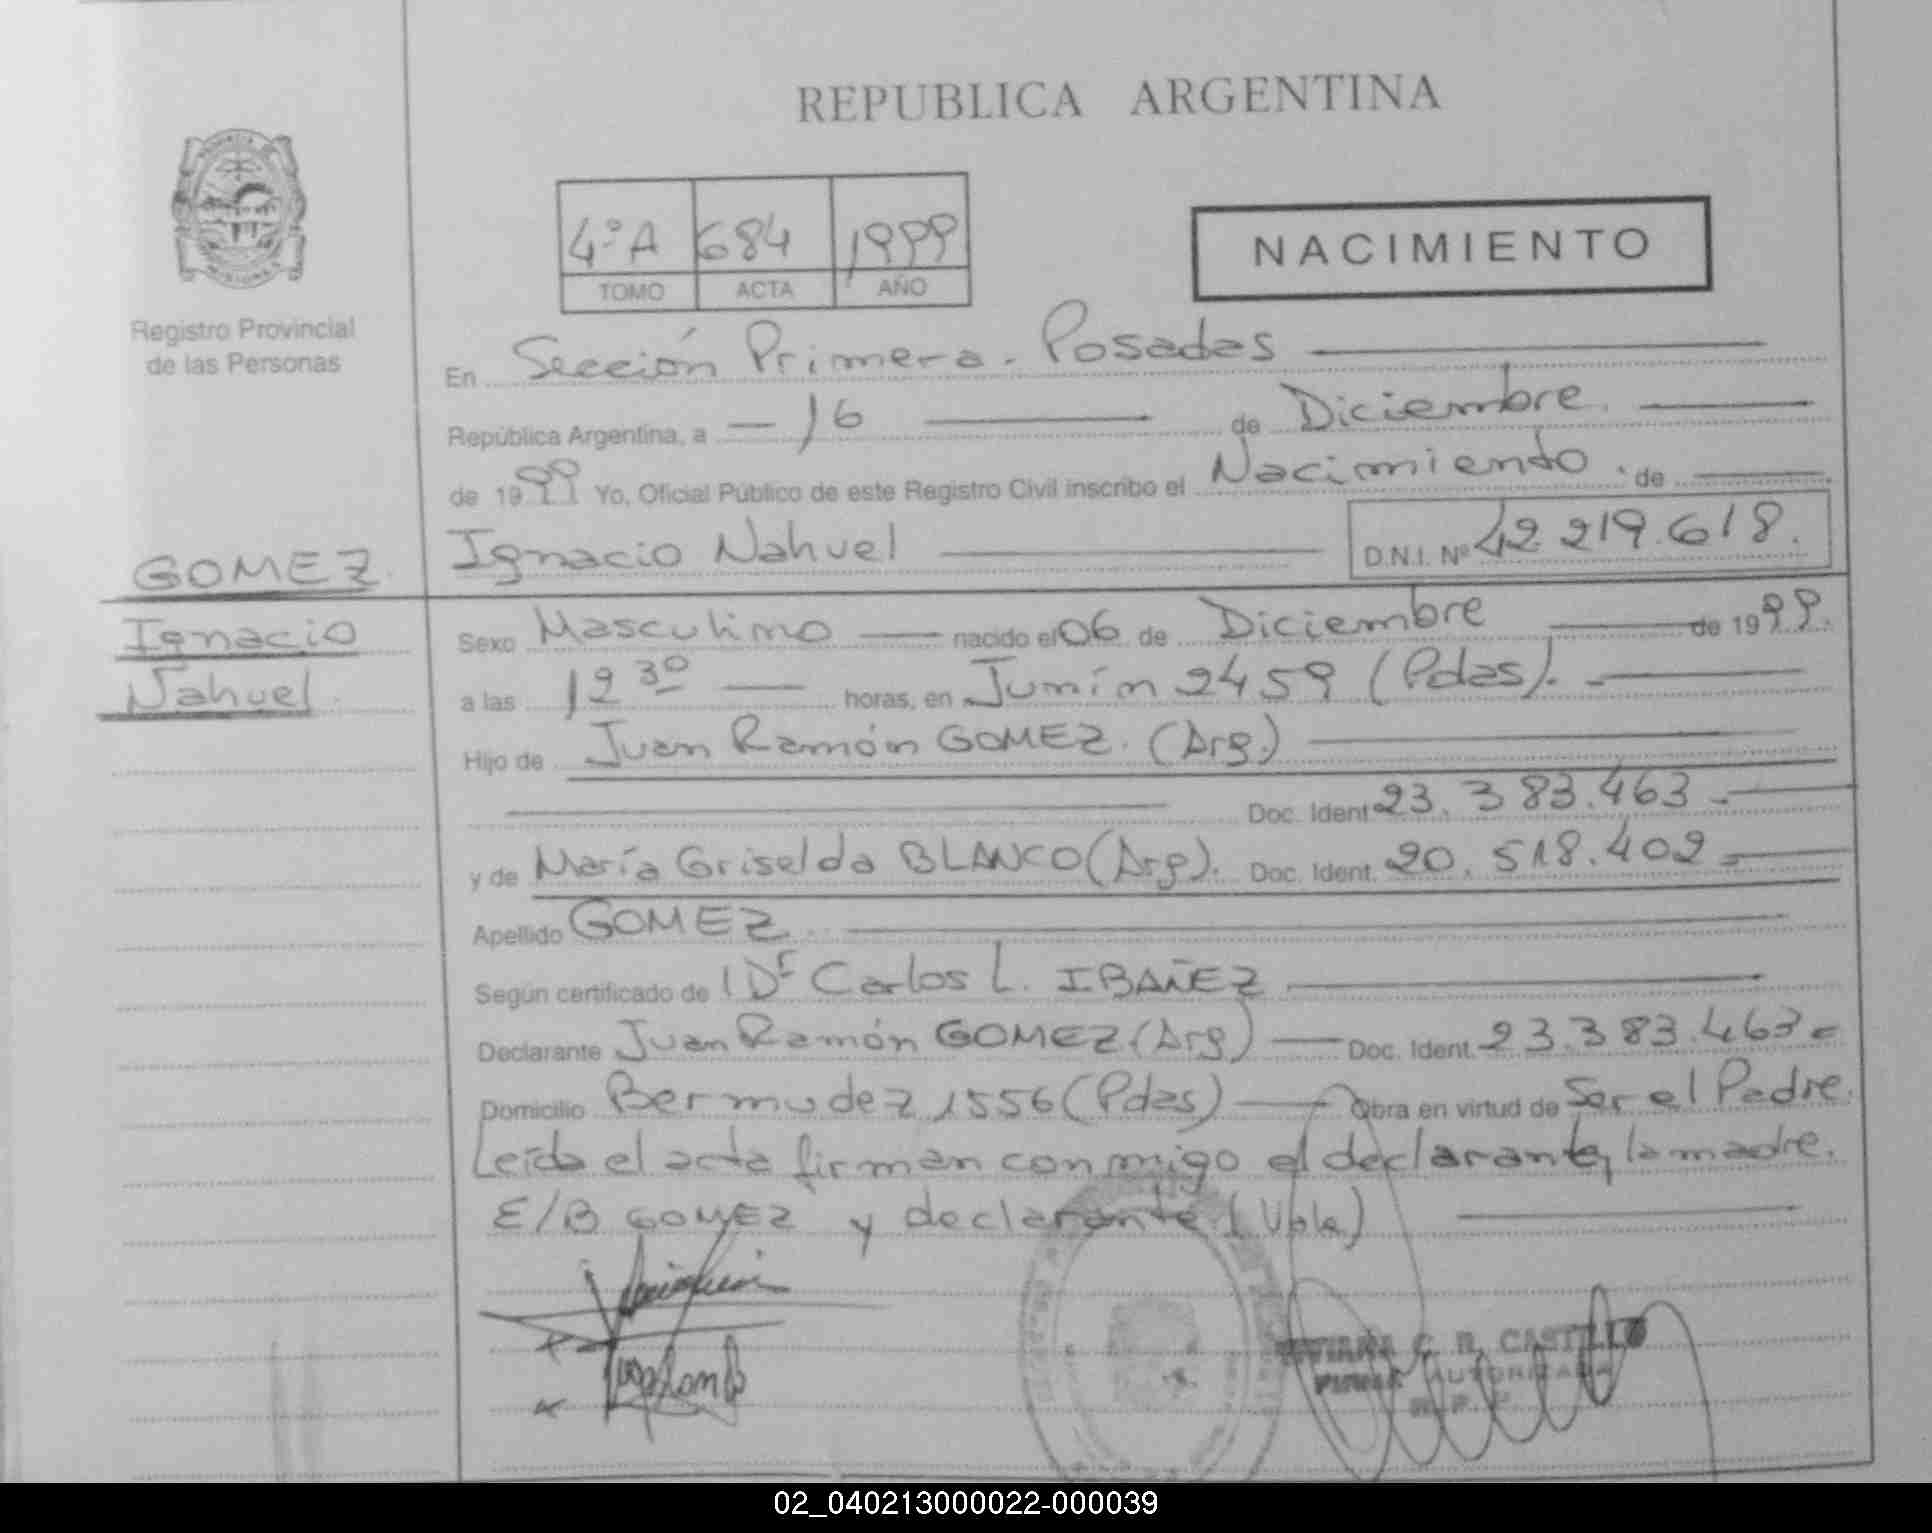 REPUBLICA ARGENTINA
PROVINCIA
MISIONES
Registro Provincial
de las Personas
4º A 684 1999
TOMO ACTA AÑO
NACIMIENTO
En Sección Primera - Posadas
República Argentina, a 16 de Diciembre
de 1999 Yo, Oficial Público de este Registro Civil inscribo el Nacimiento de
Ignacio Nahuel D.N.I. Nº 42.219.618.
GOMEZ
Ignacio
Nahuel
Sexo Masculino nacido el 06 de Diciembre de 1999.
a las 12 30 horas, en Junín 2459 (Pdas).
Hijo de Juan Ramón GOMEZ. (Arg.)
Doc. Ident 23.383.463
y de María Griselda BLANCO (Arg). Doc. Ident. 20.518.402
Apellido GOMEZ
Según certificado de Dr Carlos L. IBAÑEZ
Declarante Juan Ramón GOMEZ (Arg) Doc. Ident. 23.383.463
Domicilio Bermudez 1556 (Pdas) Obra en virtud de Ser el Padre.
Leída el acta firman conmigo el declarante, la madre.
E/B GOMEZ y declarante (Vale)
C. R. CASTILLO
FIRMA AUTORIZADA
R. P. P.
02_040213000022-000039